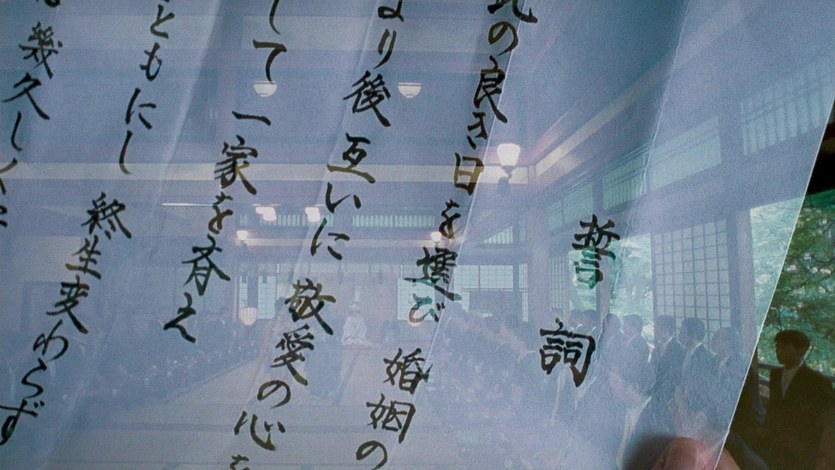 誓詞
の良き日を選び 婚姻の
より後 互いに 敬愛の心を
して 一家を斉え
ともにし 終生変わらず
幾久しく